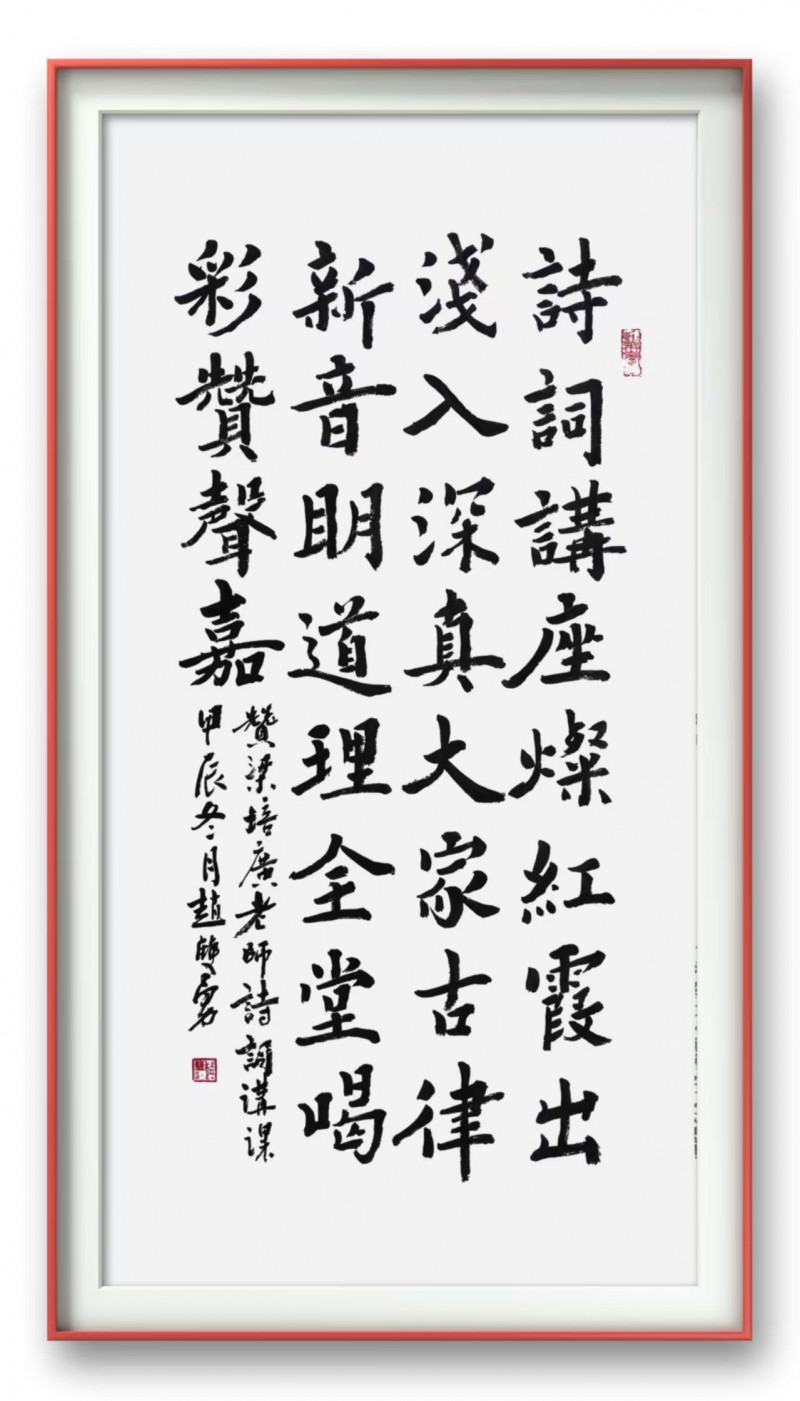 詩詞講座燦紅霞出
淺入深真大家古律
新音明道理全堂喝
彩贊聲嘉
贊梁培廣老師詩詞講課
甲辰冬月趙雙勇